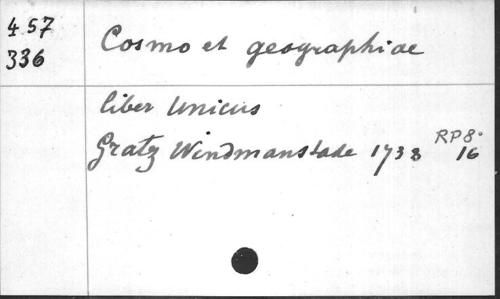 457
336
Cosmo et geographiae
liber Unicus
Gratz Windmanstade 1738 RP8.
16